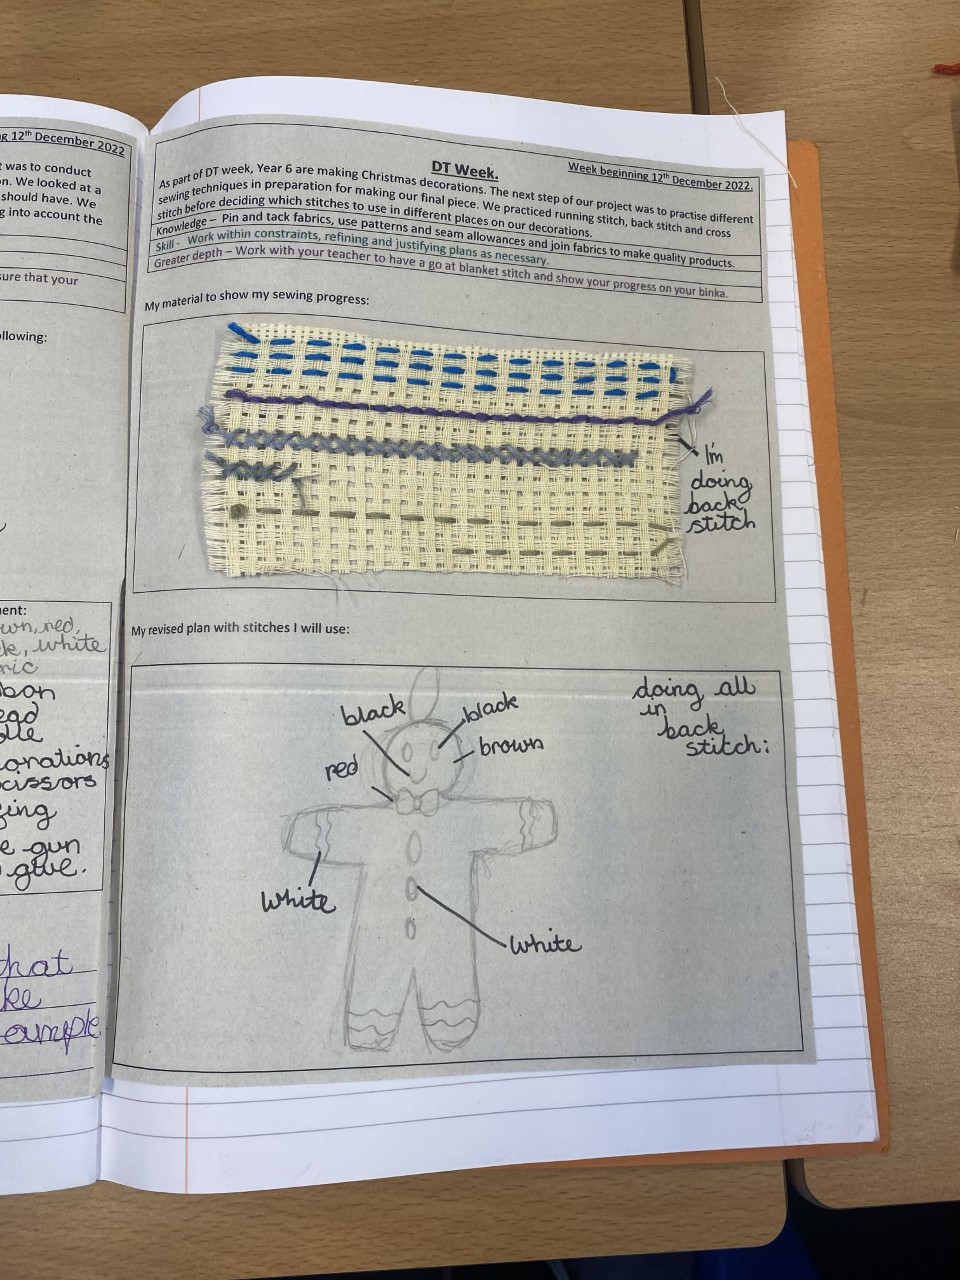 12th December 2022
t was to conduct
on. We looked at a
should have. We
g into account the
sure that your
ollowing:
ent:
wn, red,
ck, white
ric
bon
ead
corations
scissors
e gun
glue.
that
ke
DT Week.
Week beginning 12th December 2022.
As part of DT week, Year 6 are making Christmas decorations. The next step of our project was to practise different
sewing techniques in preparation for making our final piece. We practiced running stitch, back stitch and cross
stitch before deciding which stitches to use in different places on our decorations.
Knowledge – Pin and tack fabrics, use patterns and seam allowances and join fabrics to make quality products.
Skill - Work within constraints, refining and justifying plans as necessary.
Greater depth – Work with your teacher to have a go at blanket stitch and show your progress on your binka.
My material to show my sewing progress:
I'm
doing
back
stitch
My revised plan with stitches I will use:
doing all
in
back
stitch:
black
black
brown
red
white
white